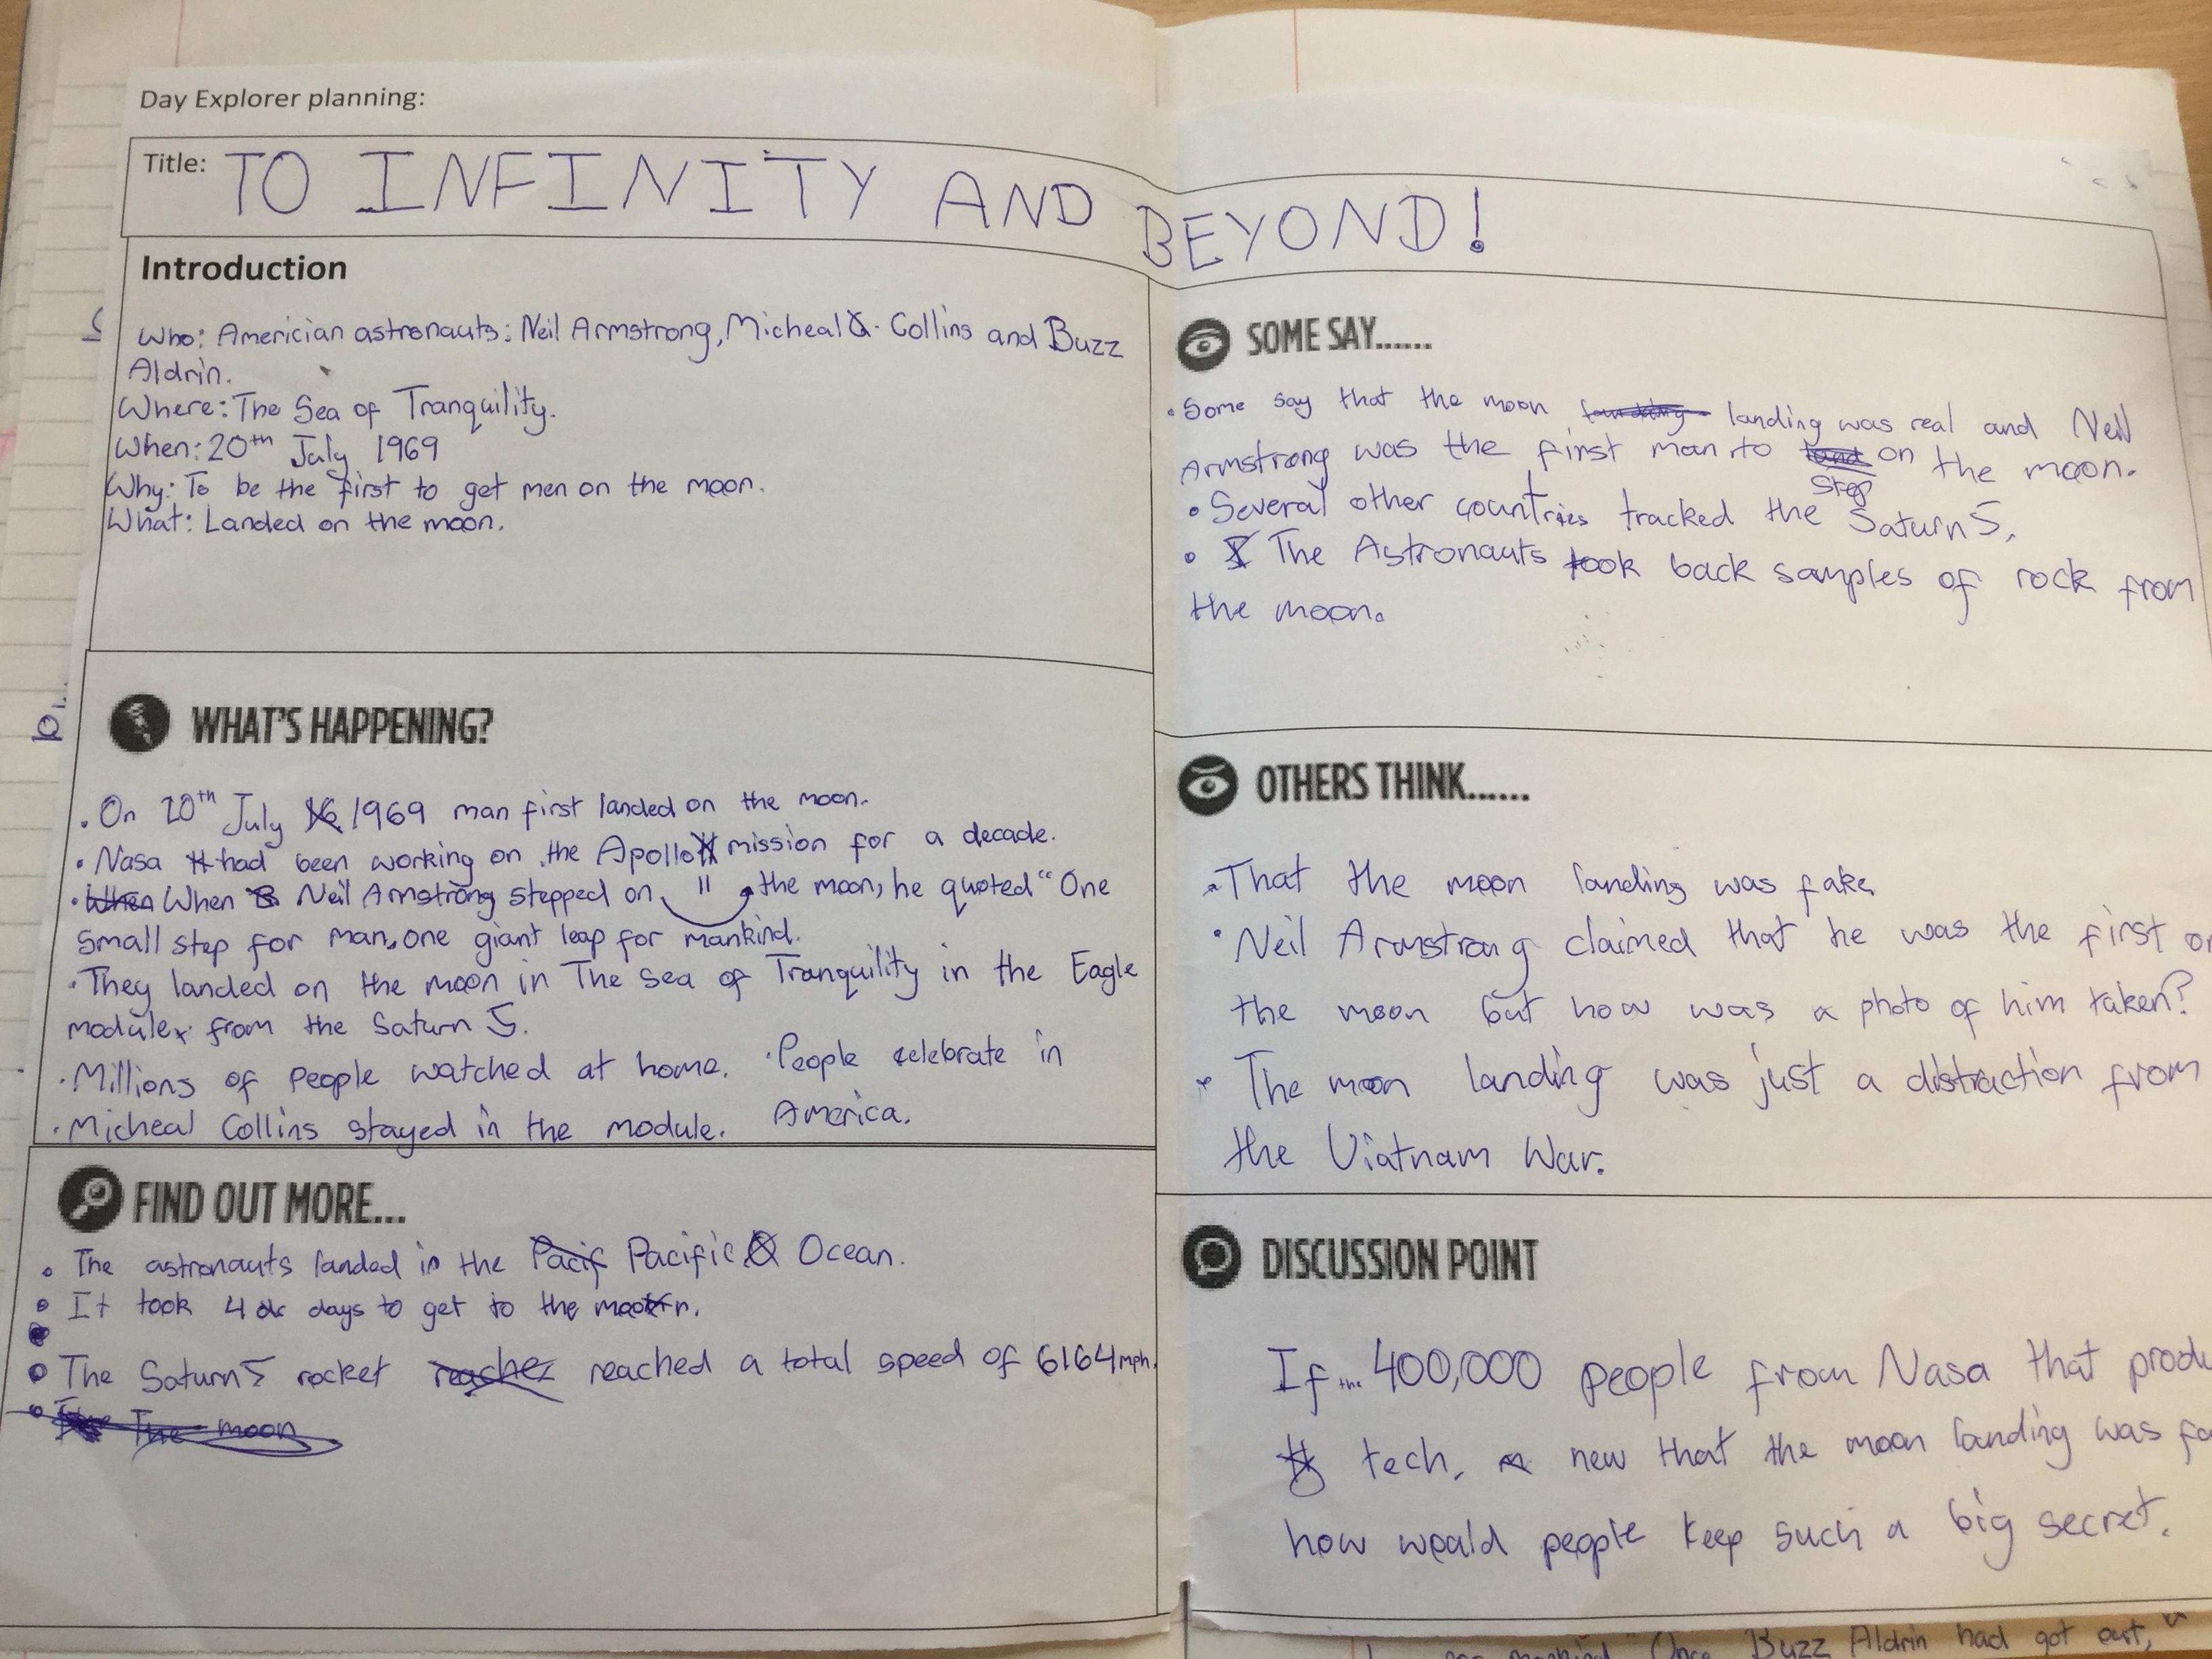 Day Explorer planning:
Title: TO INFINITY AND BEYOND!
Introduction
Who: Americian astronauts: Neil Armstrong, Micheal Collins and Buzz
Aldrin.
Where: The Sea of Tranquility.
When: 20th July 1969
Why: To be the first to get men on the moon.
What: Landed on the moon.
WHAT'S HAPPENING?
• On 20th July 1969 man first landed on the moon.
• Nasa had been working on the Apollo mission for a decade.
• When Neil Armstrong stepped on the moon, he quoted "One
small step for man, one giant leap for mankind.
• They landed on the moon in The Sea of Tranquility in the Eagle
module from the Saturn 5.
• Millions of people watched at home. • People celebrate in
America.
• Micheal Collins stayed in the module.
FIND OUT MORE...
• The astronauts landed in the Pacific Ocean.
• It took 4 days to get to the moon.
• The Saturn 5 rocket reached a total speed of 6164mph.
The moon
SOME SAY......
• Some say that the moon landing was real and Neil
Armstrong was the first man to step on the moon.
• Several other countries tracked the Saturn 5.
• The Astronauts took back samples of rock from
the moon.
OTHERS THINK......
• That the moon landing was fake
• Neil Armstrong claimed that he was the first
the moon but how was a photo of him taken?
• The moon landing was just a distraction from
the Viatnam War.
DISCUSSION POINT
If the 400,000 people from Nasa that produ
tech, new that the moon landing was fa
how would people keep such a big secret.
Once Buzz Aldrin had got out,